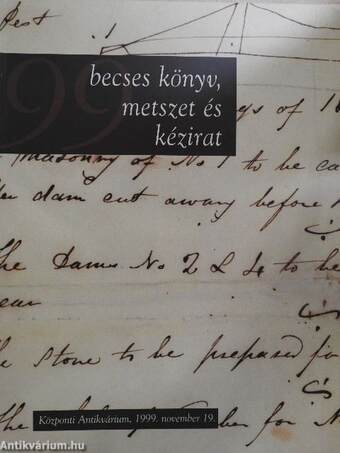 Pest
99
becses könyv,
metszet és
kézirat
gs of 1
Masonry of No 1 to be ca
dam cut away before
The Dams No 2 & 4 to be
ear
stone to be prepared fo
Központi Antikvárium, 1999. november 19.
for N
Antikvárium.hu